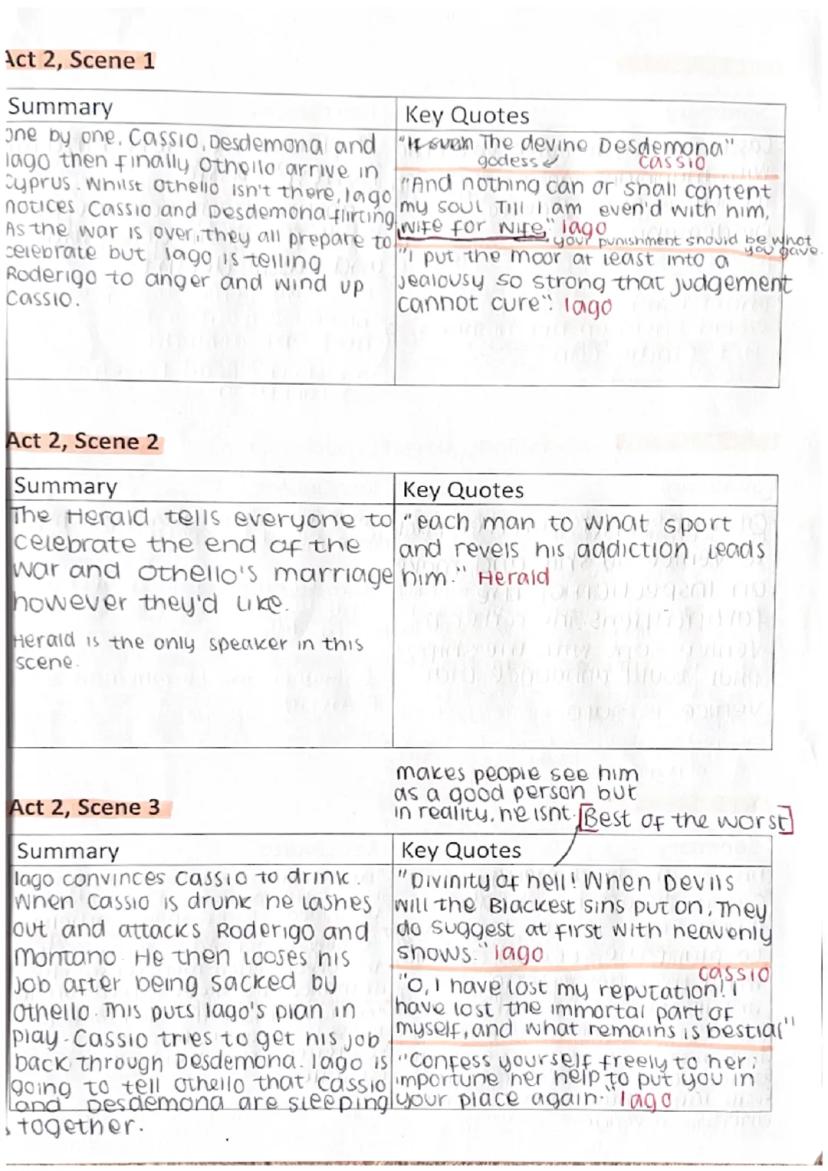 Act 2, Scene 1
Summary
one by one, Cassio, Desdemona and
Iago then finally Othello arrive in
Cyprus. Whilst Othello isn't there, Iago
notices Cassio and Desdemona flirting
As the war is over, they all prepare to
celebrate but Iago is telling
Roderigo to anger and wind up
Cassio.
Key Quotes
"The devine Desdemona"
godess Cassio
"And nothing can or shall content
my soul Till I am even'd with him,
wife for wife." Iago
your punishment should be what
you gave.
"I put the moor at least into a
jealousy so strong that judgement
cannot cure". Iago
Act 2, Scene 2
Summary
The Herald tells everyone to
celebrate the end of the
war and Othello's marriage
however they'd like.
Herald is the only speaker in this
scene.
Key Quotes
"each man to what sport
and revels his addiction leads
him." Herald
Act 2, Scene 3
makes people see him
as a good person but
in reality, he isnt. [Best of the worst]
Summary
Iago convinces Cassio to drink.
When Cassio is drunk he lashes
out and attacks Roderigo and
Montano. He then looses his
job after being sacked by
Othello. This puts Iago's plan in
play. Cassio tries to get his job
back through Desdemona. Iago is
going to tell Othello that Cassio
and Desdemona are sleeping
together.
Key Quotes
"Divinity of hell! When Devils
will the Blackest sins put on, They
do suggest at first with heavenly
shows." Iago
Cassio
"O, I have lost my reputation! I
have lost the immortal part of
myself, and what remains is bestial"
"Confess yourself freely to her;
importune her help to put you in
your place again. Iago